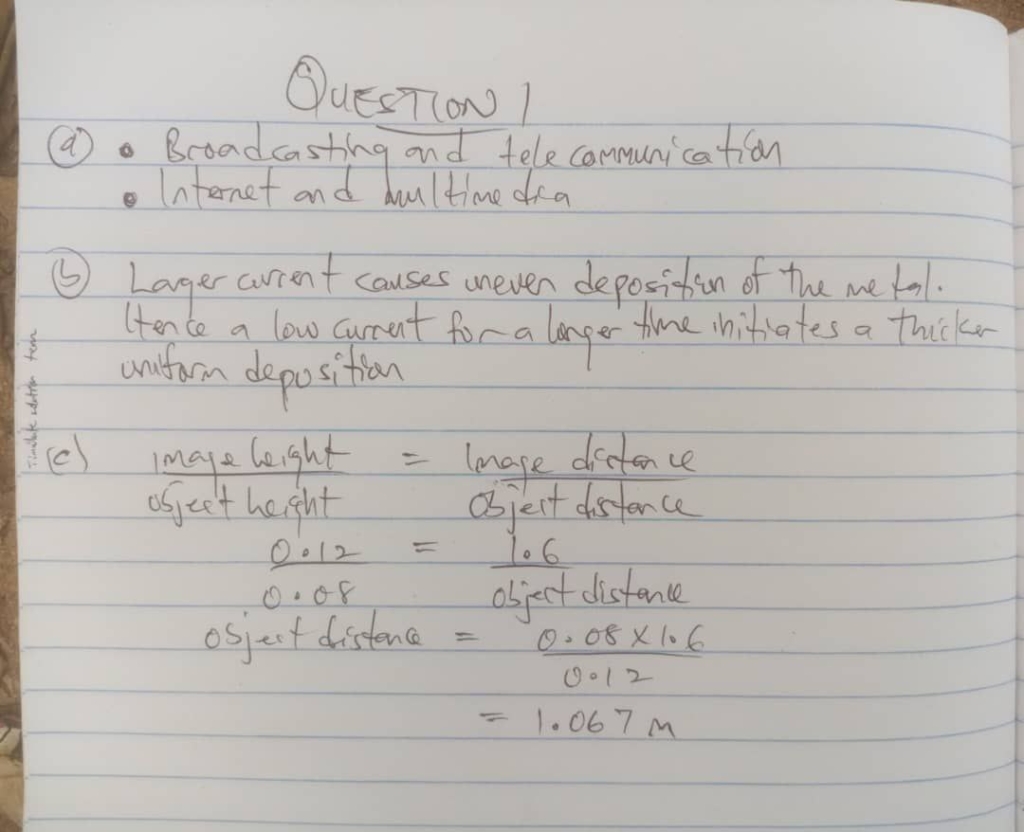 QUESTION 1
(a) • Broadcasting and telecommunication
• Internet and multimedia
(b) Lager current causes uneven deposition of the metal.
Hence a low current for a longer time initiates a thicker
uniform deposition
(c) image height = Image distance
object height object distance
0.12 = 1.6
0.08 object distance
object distance = 0.08 x 1.6
0.12
= 1.067 m